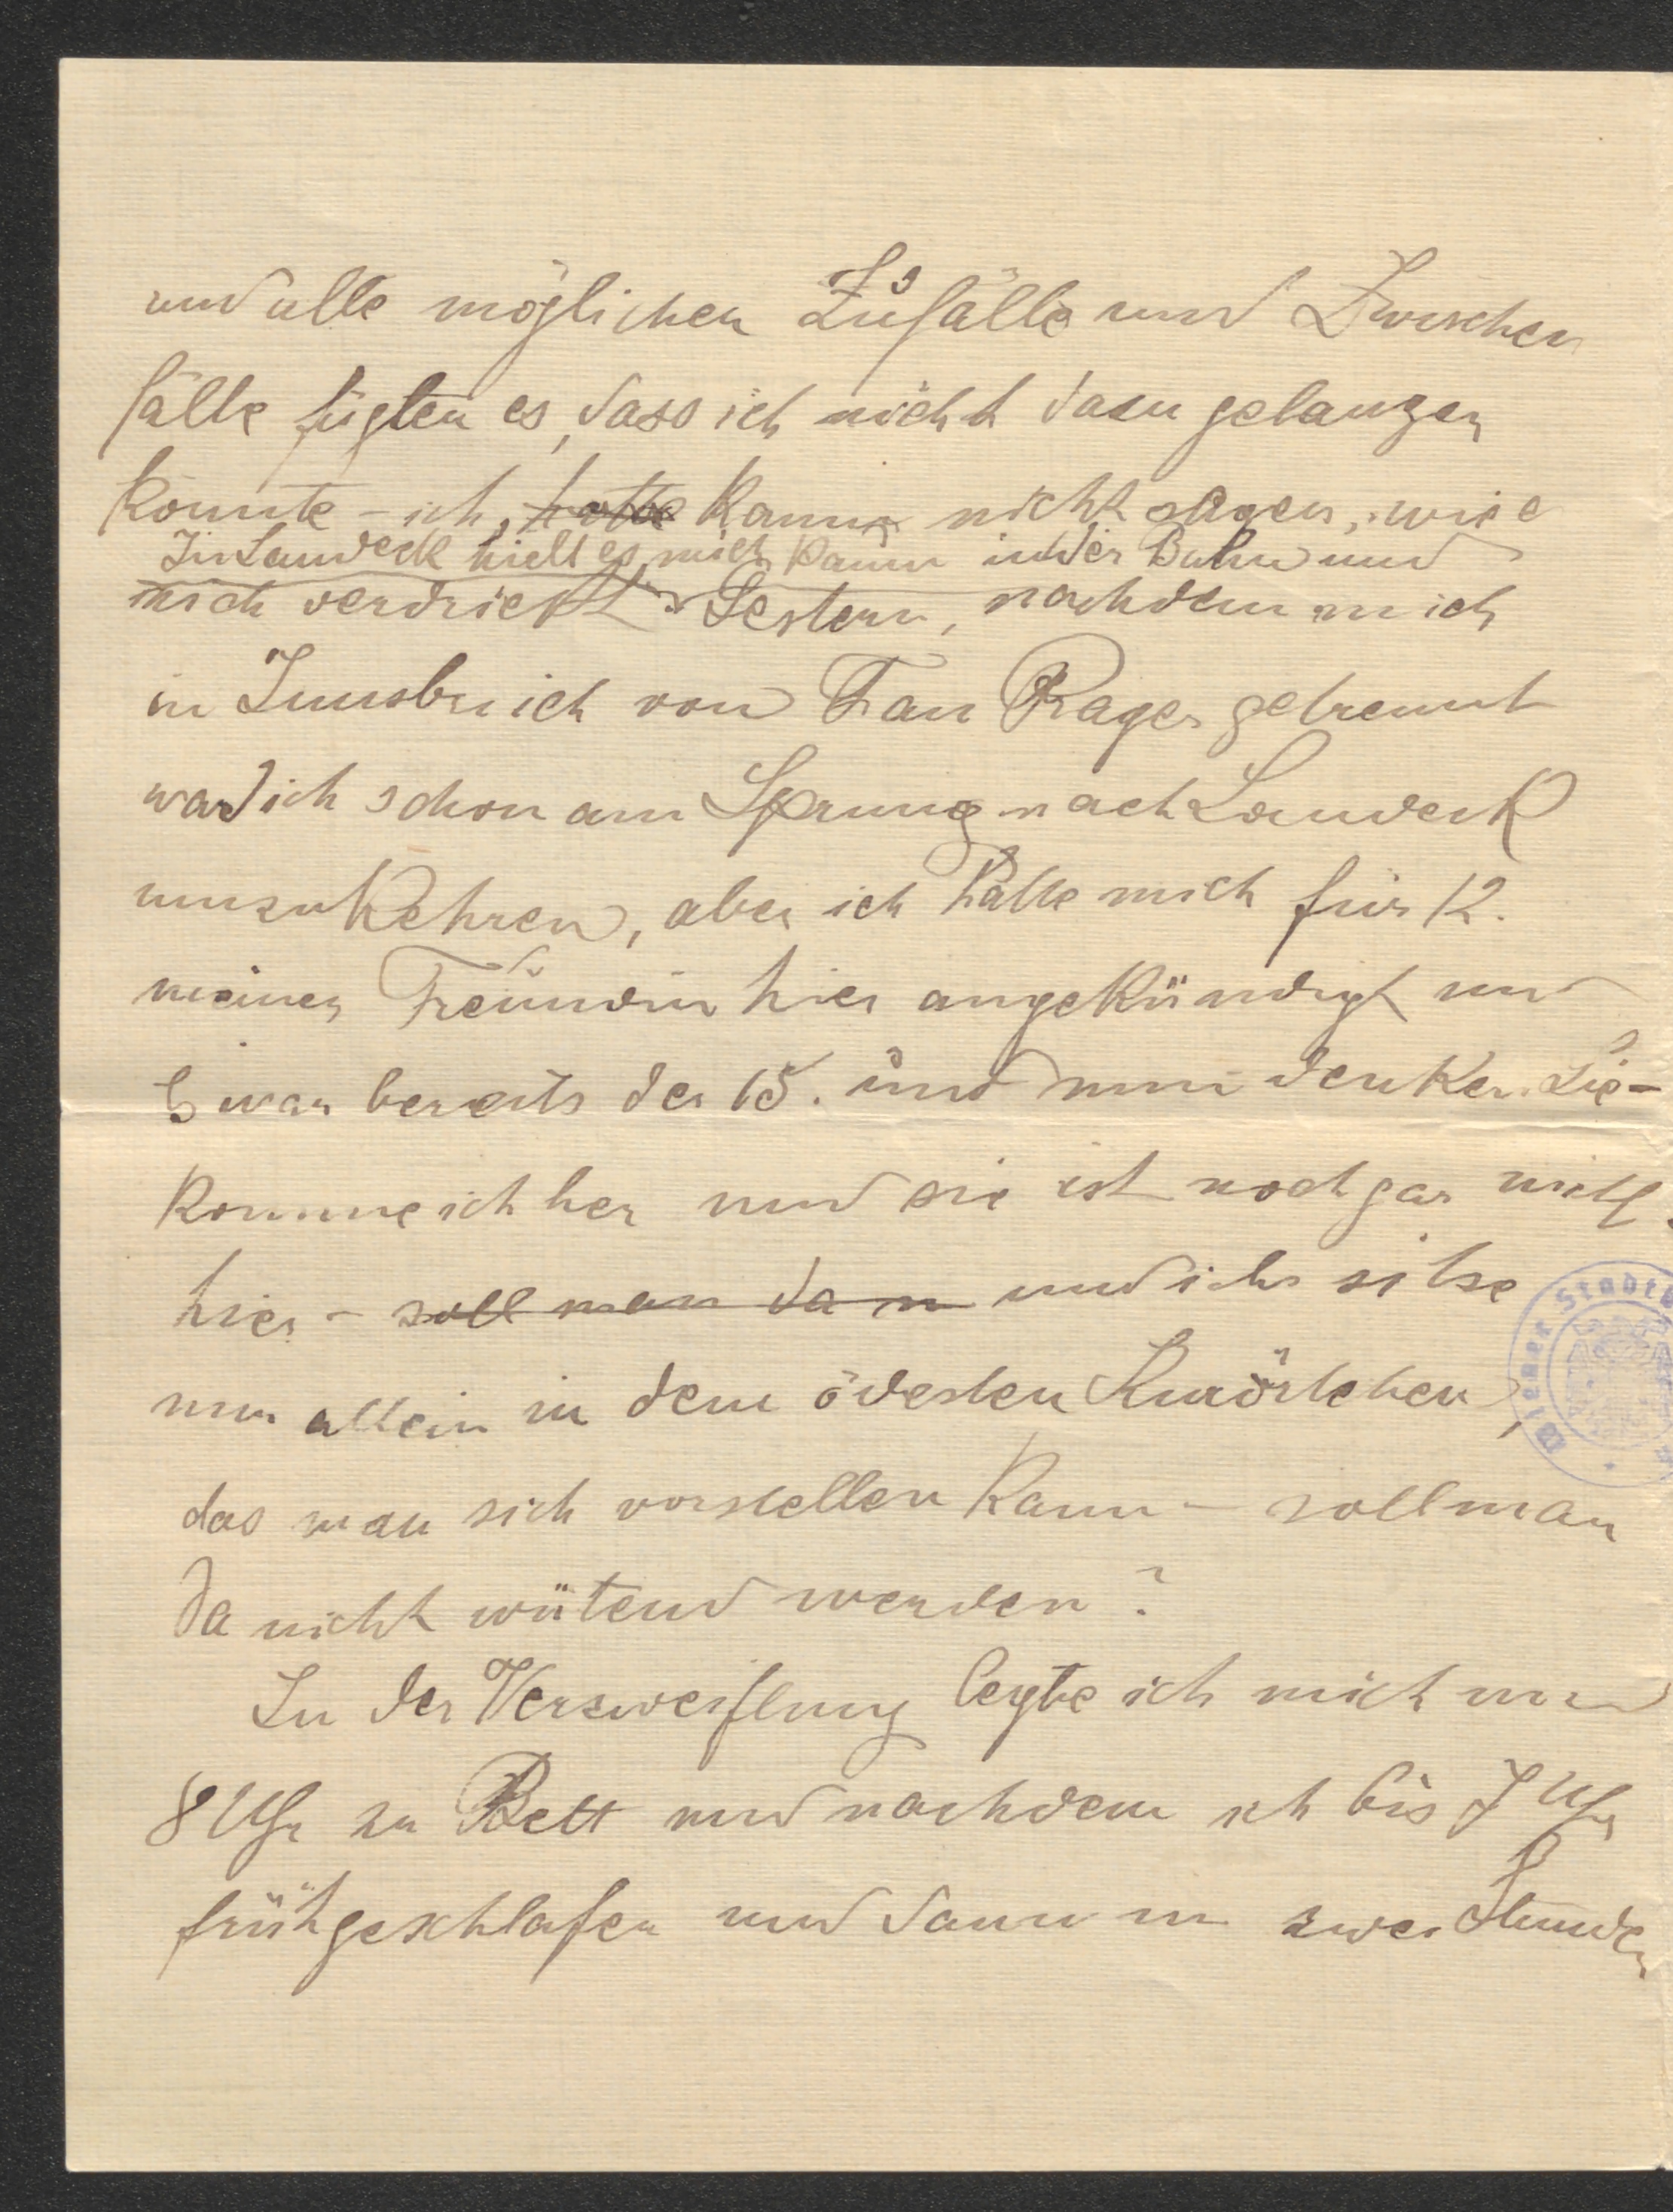 und alle möglichen Zufälle und Zwischen
fälle fügten es, dass ich nicht dazu gelangen
konnte – ich, hatte kann nicht sagen, wie e
In Landeck hielt es mich kaum in der Bahn und
mich verdriesst. Gestern, nachdem mich
in Innsbruck von Frau Prager getrennt
war ich schon am Sprung nach Landeck
umzukehren, aber ich hatte mich für 12.
meiner Freundin hier angekündigt und
Es war bereits der 15. und nun denken Sie –
komme ich her und sie ist noch gar nicht
hier – soll man da n und ich sitze
nun allein in dem ödesten Kurörtchen,
das man sich vorstellen kann – soll man
da nicht wütend werden?
In der Verzweiflung legte ich mich um
8 Uhr zu Bett und nachdem ich bis 7 Uhr
früh geschlafen und dann in zwei Stunden
Wiener Stadt